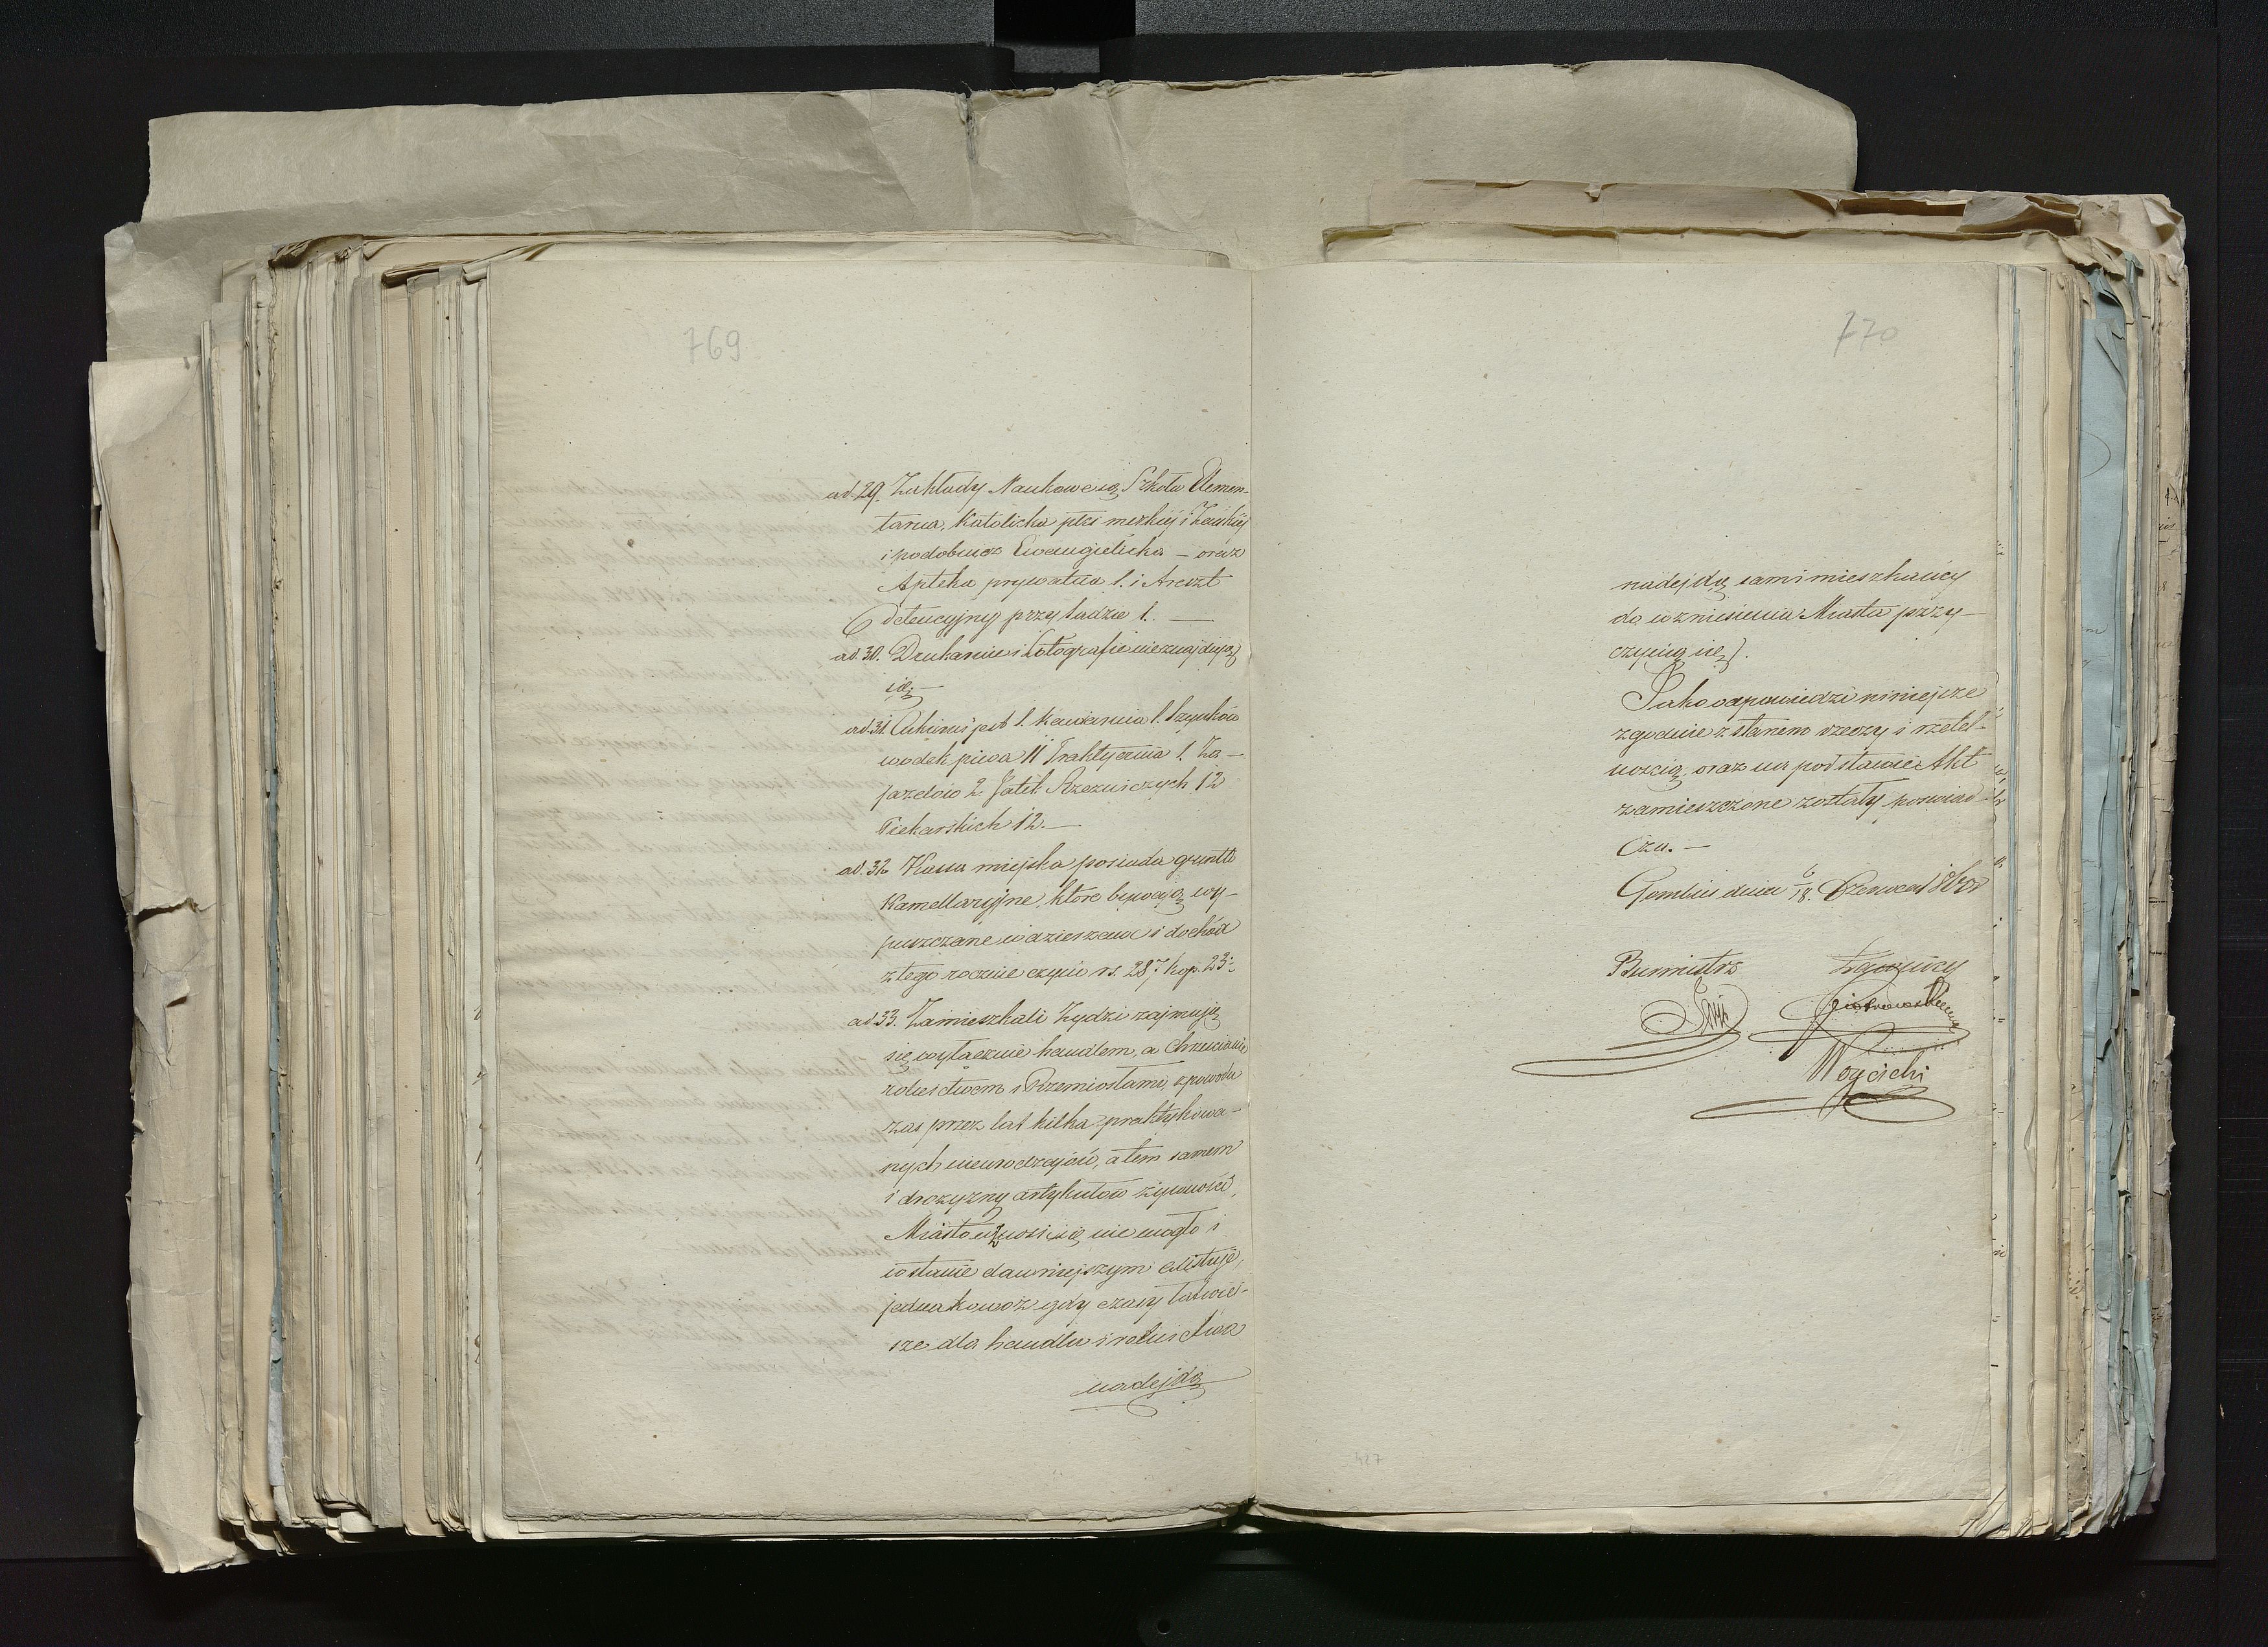 769
ad. 29. Zakłady Naukowe są, Szkoła Elemen-
tarna, Katolicka płci męzkiéj i Żeńskiéj
i podobnież Ewangielicka – oraz
Apteka prywatna 1. i Areszt
detencyjny przy ładzie 1. —
ad. 30. Drukarnie i Litografie nieznajdują
się –
ad. 31. Cukierni jest 1. Kawiarnia 1. Szynków
wodek piwa 11 Traktyernia 1. Za-
jazdow 2. Jatek Rzezniczych 12
Piekarskich 12. —
ad. 32. Kassa miejska posiada grunta
Kamellaryjne, które bywają wy-
puszczane w dzierzawe i dochód
z tego rocznie czyni rs. 287 kop. 23
ad 33. Zamieszkali Żydzi zajmują
się wyłacznie handlem, a Chrześcianie
rolnictwem i Rzemiosłami, z powodu
zas przez lat kilka praktykowa-
nych nieurodzajów, a tem samem
i drozyzny artykułów żywności,
Miasto wznosi się nie mogło i
w stanie dawniejszym exlistuje,
jednakowoż gdy czasy łatwiej-
sze dla handlu i rolnictwa
nadejdą
770
nadejdą, sami mieszkańcy
do wzniesienia Miasta przy-
czynią się.
Jako odpowiedzi niniejsze
zgodnie z stanem rzeczy i rzetel-
nością, oraz na podstawie Akt
zamieszczone zostały poswiad-
cza. —
Gombin dnia 6/18. Czerwca 1860
Burmistrz Ławnicy
Piotrowski
Woycicki
427